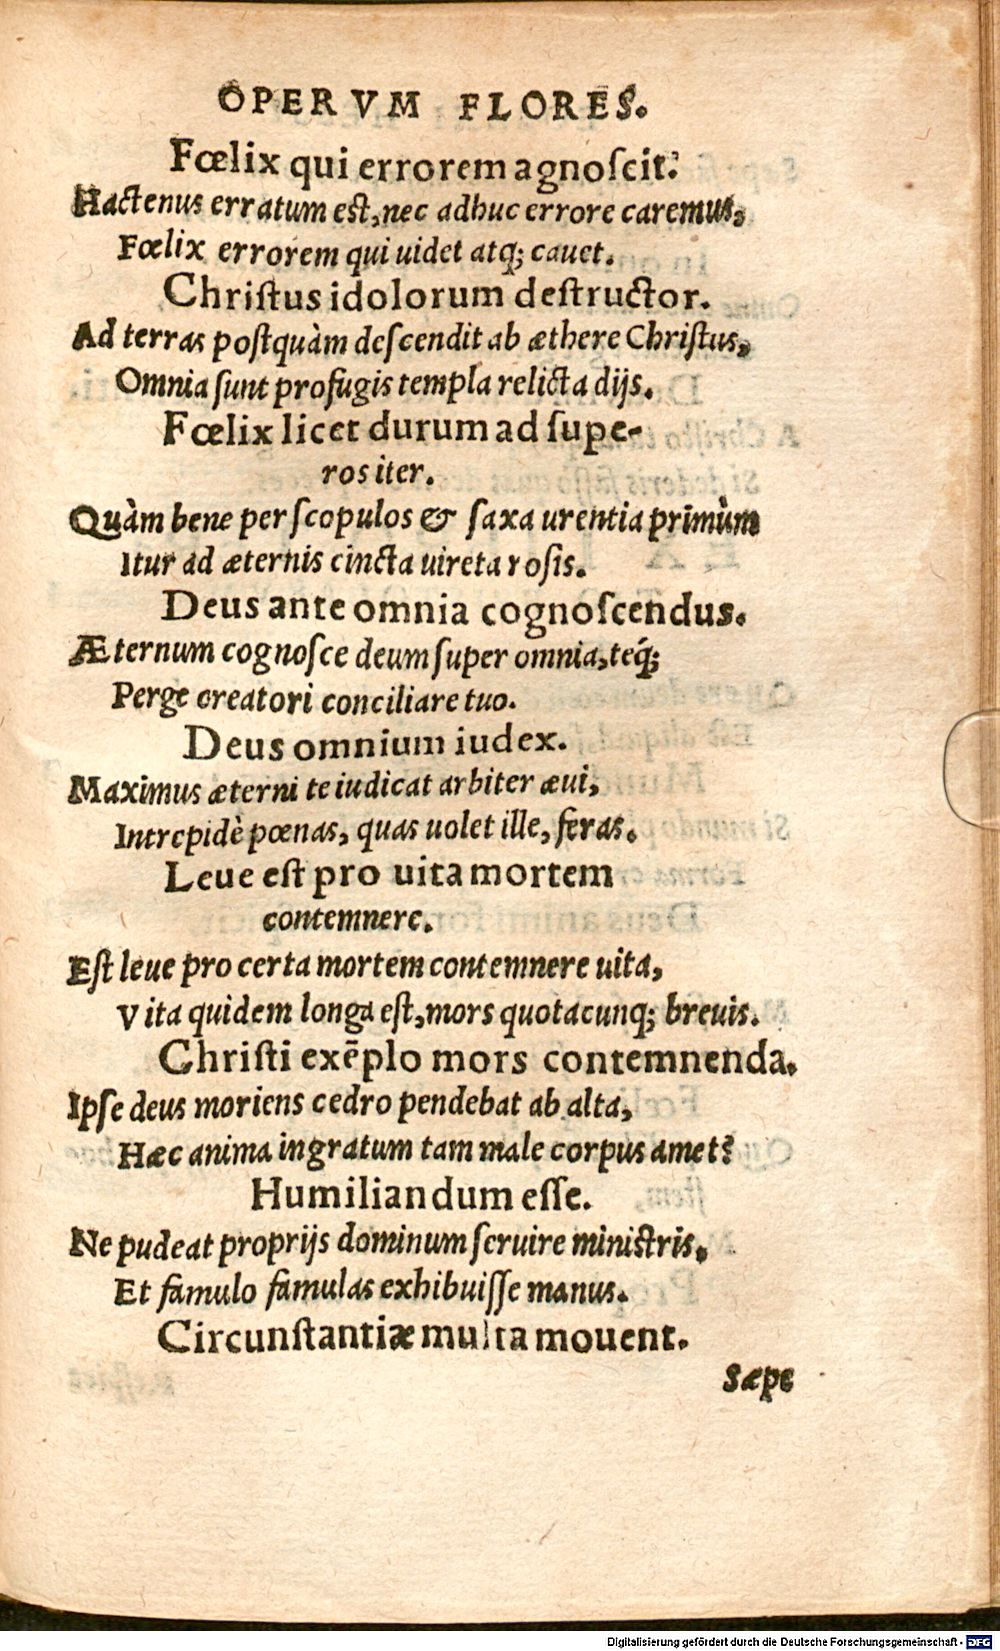 OPERVM FLORES.
Fœlix qui errorem agnoſcit.
Hactenus erratum eſt, nec adhuc errore caremus,
Fœlix errorem qui uidet atq; cauet.
Chriſtus idolorum deſtructor.
Ad terras poſtquàm deſcendit ab æthere Chriſtus,
Omnia ſunt profugis templa relicta dijs.
Fœlix licet durum ad ſupe-
ros iter.
Quàm bene per ſcopulos & ſaxa urentia primùm
Itur ad æternis cincta uireta roſis.
Deus ante omnia cognoſcendus.
Æternum cognoſce deum ſuper omnia, teq́;
Perge creatori conciliare tuo.
Deus omnium iudex.
Maximus æterni te iudicat arbiter æui,
Intrepidè pœnas, quas uolet ille, feras.
Leue eſt pro uita mortem
contemnere.
Eſt leue pro certa mortem contemnere uita,
Vita quidem longa eſt, mors quotacunq; breuis.
Chriſti exẽplo mors contemnenda.
Ipſe deus moriens cedro pendebat ab alta,
Hæc anima ingratum tam male corpus amet?
Humiliandum eſſe.
Ne pudeat proprijs dominum ſeruire miniſtris,
Et famulo famulas exhibuiſſe manus.
Circunſtantiæ multa mouent.
Sæpe
Digitalisierung gefördert durch die Deutsche Forschungsgemeinschaft - DFG